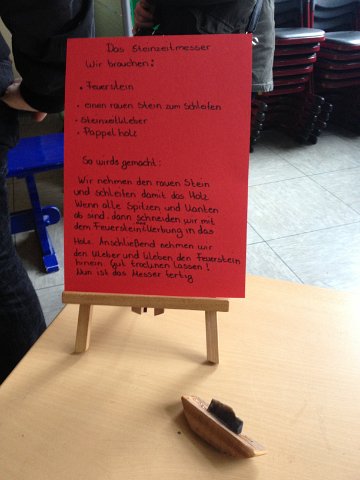 Das Steinzeitmesser
Wir brauchen:
• Feuerstein
• einen rauen Stein zum Schleifen
• Steinzeitkleber
• Pappelholz
So wirds gemacht:
Wir nehmen den rauen Stein
und schleifen damit das Holz.
Wenn alle Spitzen und Kanten
ab sind, dann schneiden wir mit
dem Feuerstein Kerbung in das
Holz. Anschließend nehmen wir
den Kleber und kleben den Feuerstein
hinein. Gut trocknen lassen!
Nun ist das Messer fertig